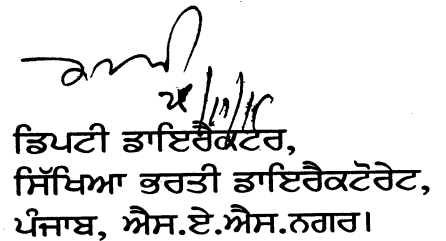 ਡਿਪਟੀ ਡਾਇਰੈਕਟਰ,
ਸਿੱਖਿਆ ਭਰਤੀ ਡਾਇਰੈਕਟੋਰੇਟ,
ਪੰਜਾਬ, ਐਸ.ਏ.ਐਸ.ਨਗਰ।